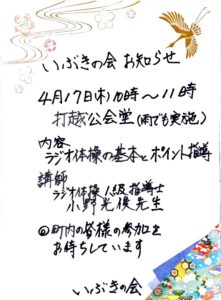 いぶきの会 お知らせ
4月17日(木)10時〜11時
打越公会堂(雨でも実施)
内容
ラジオ体操の基本とポイント指導
講師
ラジオ体操1級指導士
小野光俊先生
◎町内の皆様の参加を
お待ちしています
いぶきの会